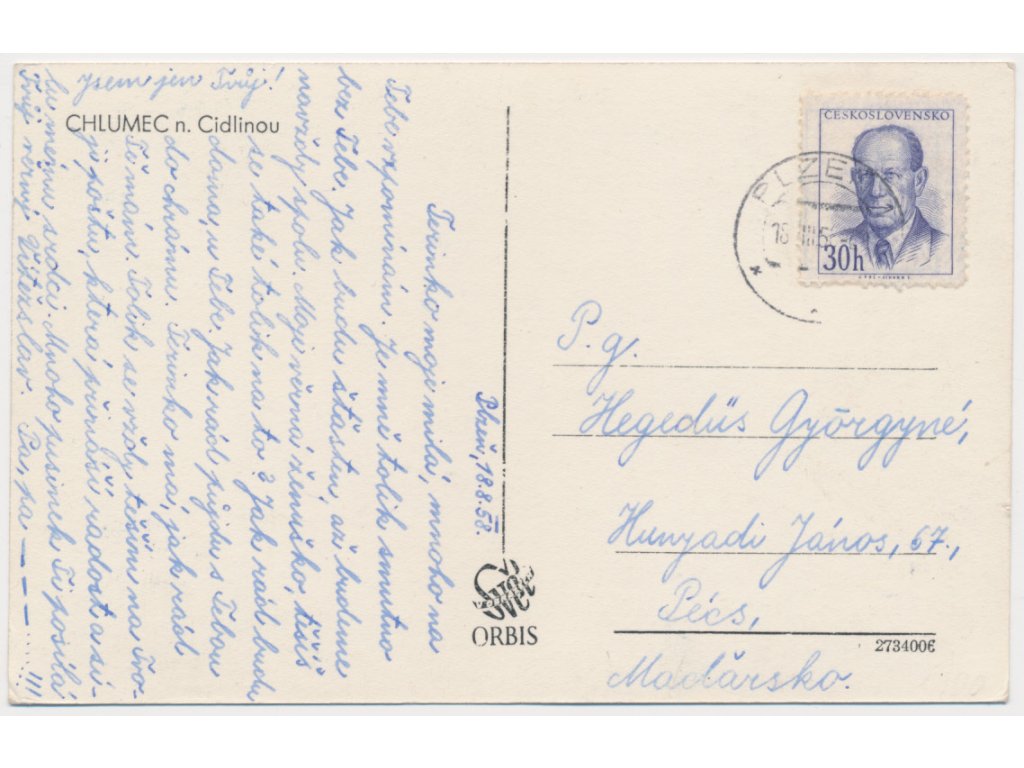 CHLUMEC n. Cidlinou
Plzeň, 18.8.58.
Terinko moje milá, mnoho na
Tebe vzpomínám. Je mně tolik smutno
bez Tebe. Jak budu šťasten, až budeme
navždy spolu. Moje věrná ženuško, těšíš
se také tolik na to? Jak rád budu
doma, u Tebe. Jak rád půjdu s Tebou
do chrámu. Terinko má, jak rád
Tě mám. Tolik se vždy těším na Tvo-
ji poštu, která přináší radost a sí-
lu mému srdci. Mnoho pusinek Ti posílá
Tvůj věrný Vítězslav. Pa, pa ... !!!
Jsem jen Tvůj!
ČESKOSLOVENSKO
30h
PLZEŇ
P. g.
Hegedüs Györgyné,
Hunyadi János, 67.,
Pécs,
Maďarsko.
Svět
ORBIS
273400€